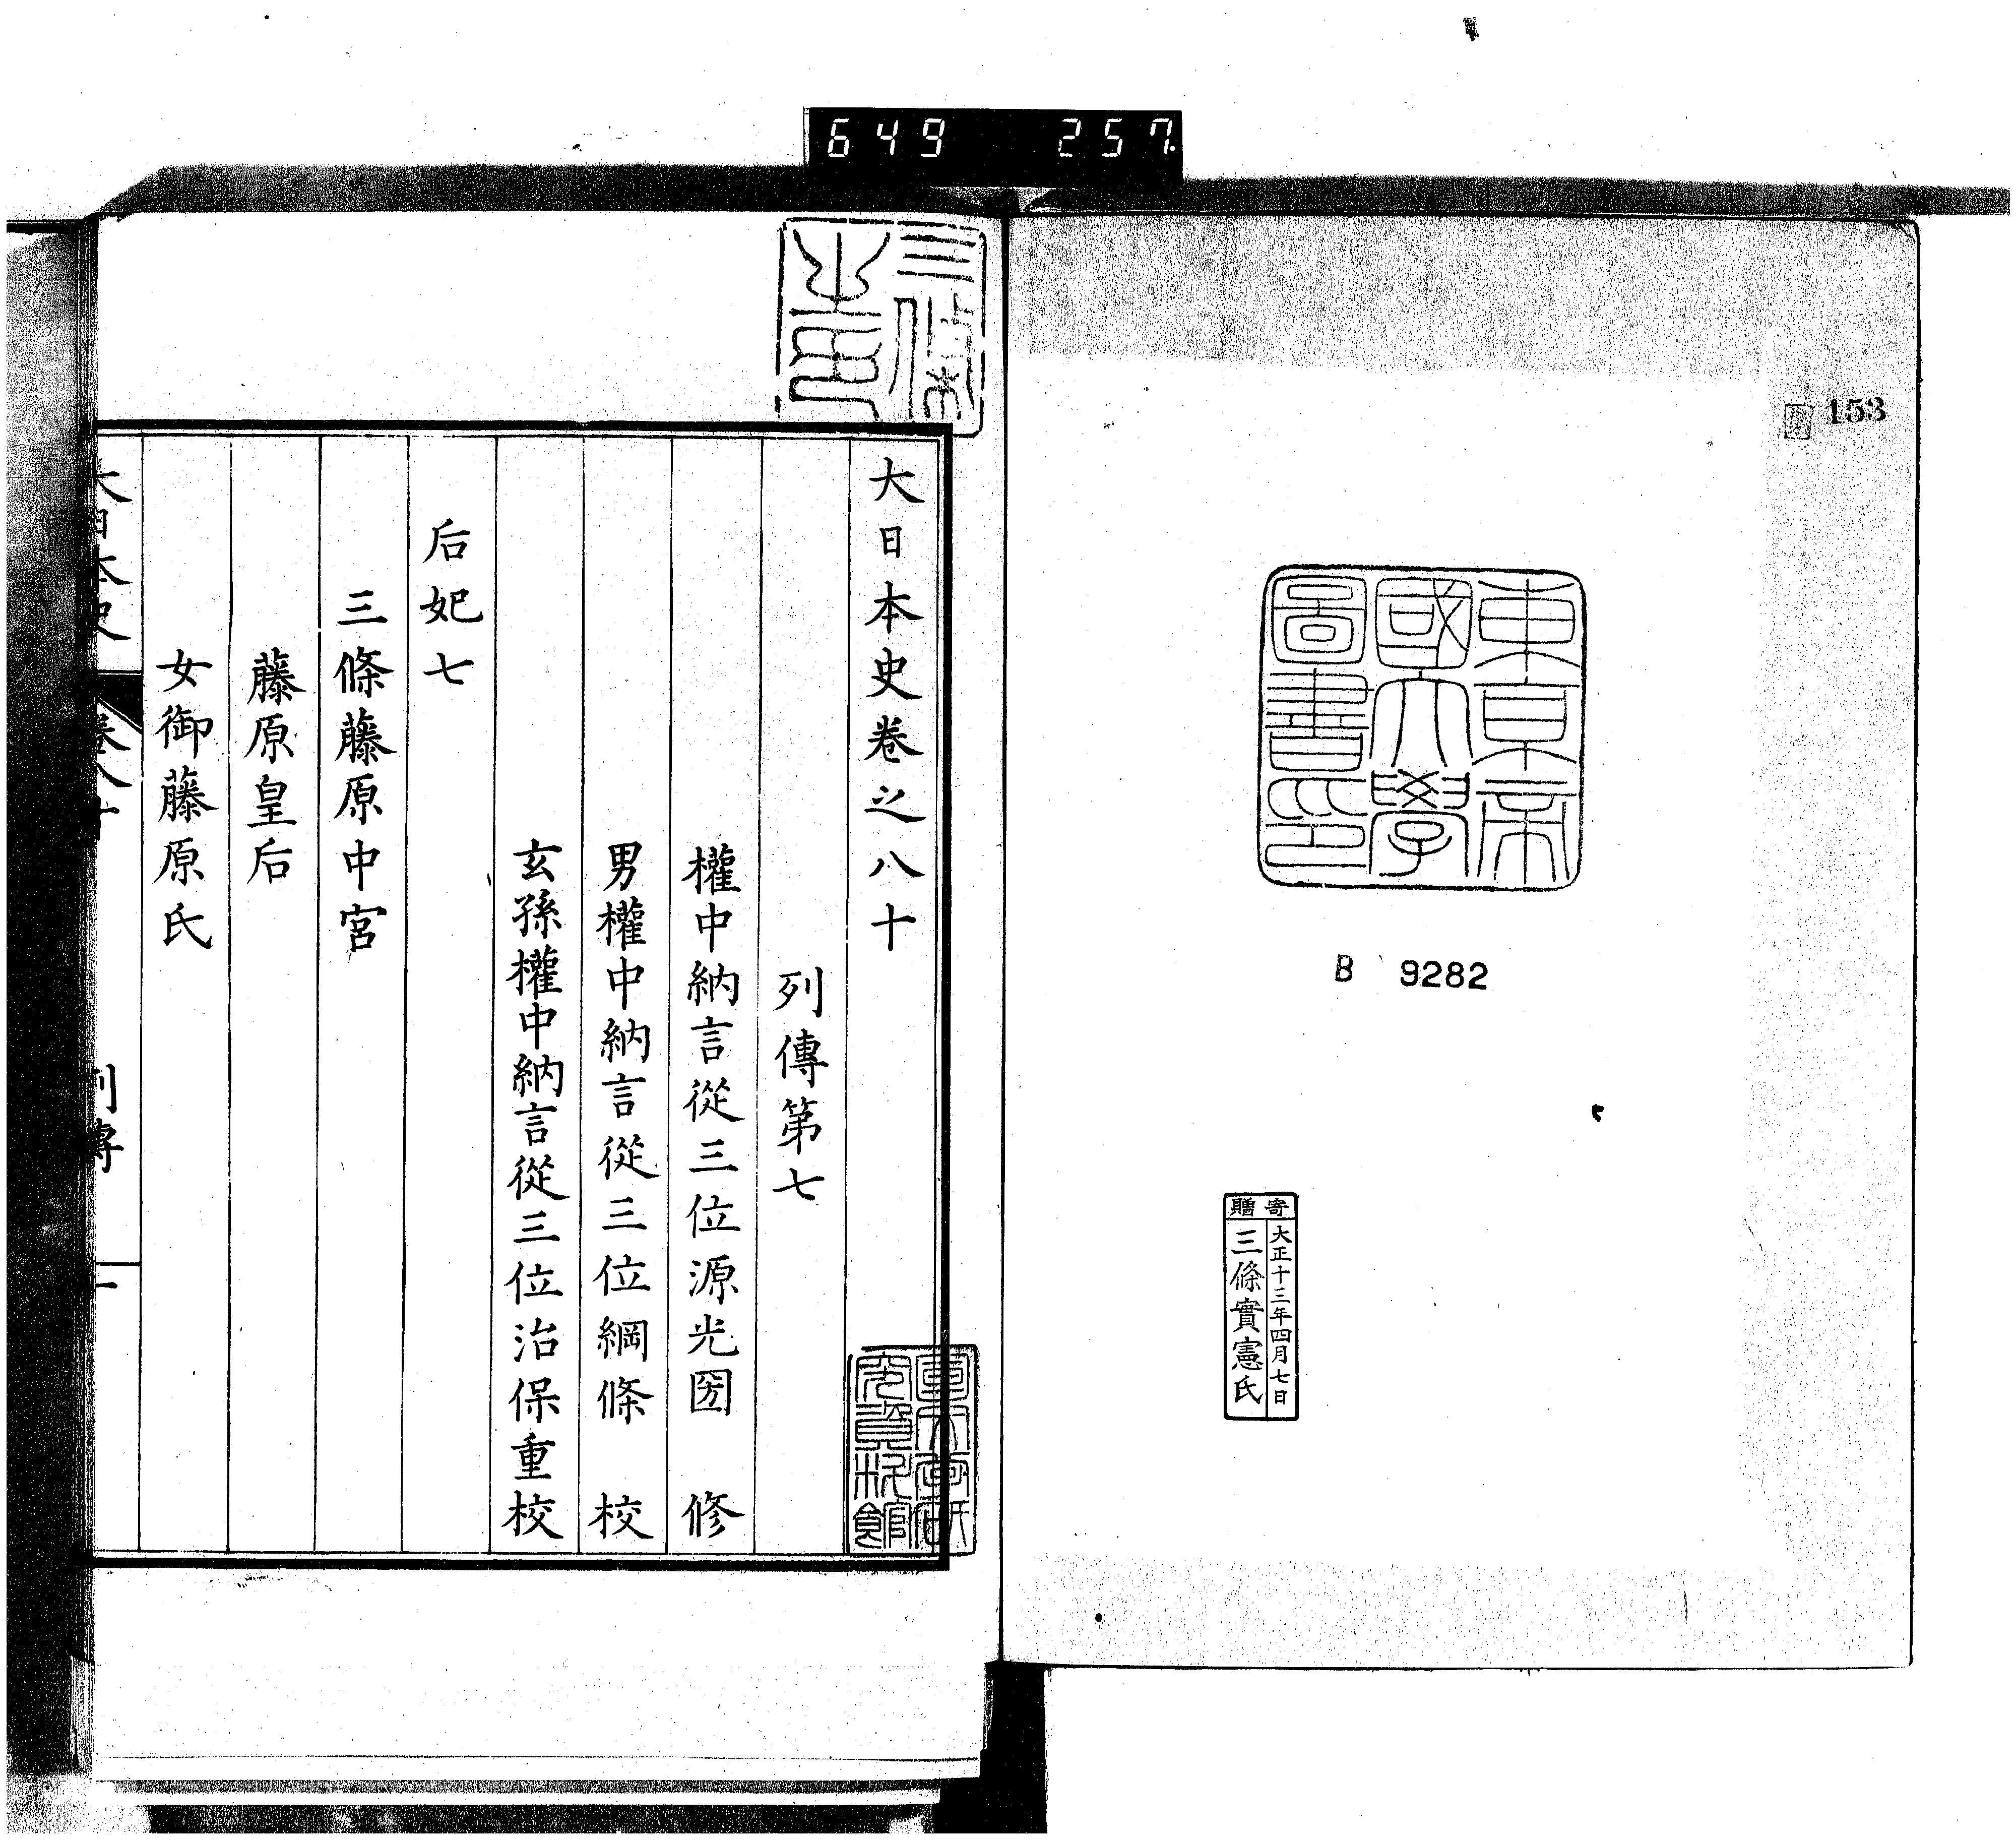 649 257
153
東京帝
國大學
圖書印
B 9282
寄贈
大正十三年四月七日
三條實憲氏
三條
大日本史卷之八十
列傳第七
權中納言從三位源光圀 修
男權中納言從三位綱條 校
玄孫權中納言從三位治保重校
后妃七
三條藤原中宮
藤原皇后
女御藤原氏
大日本史 卷八十 列傳 一